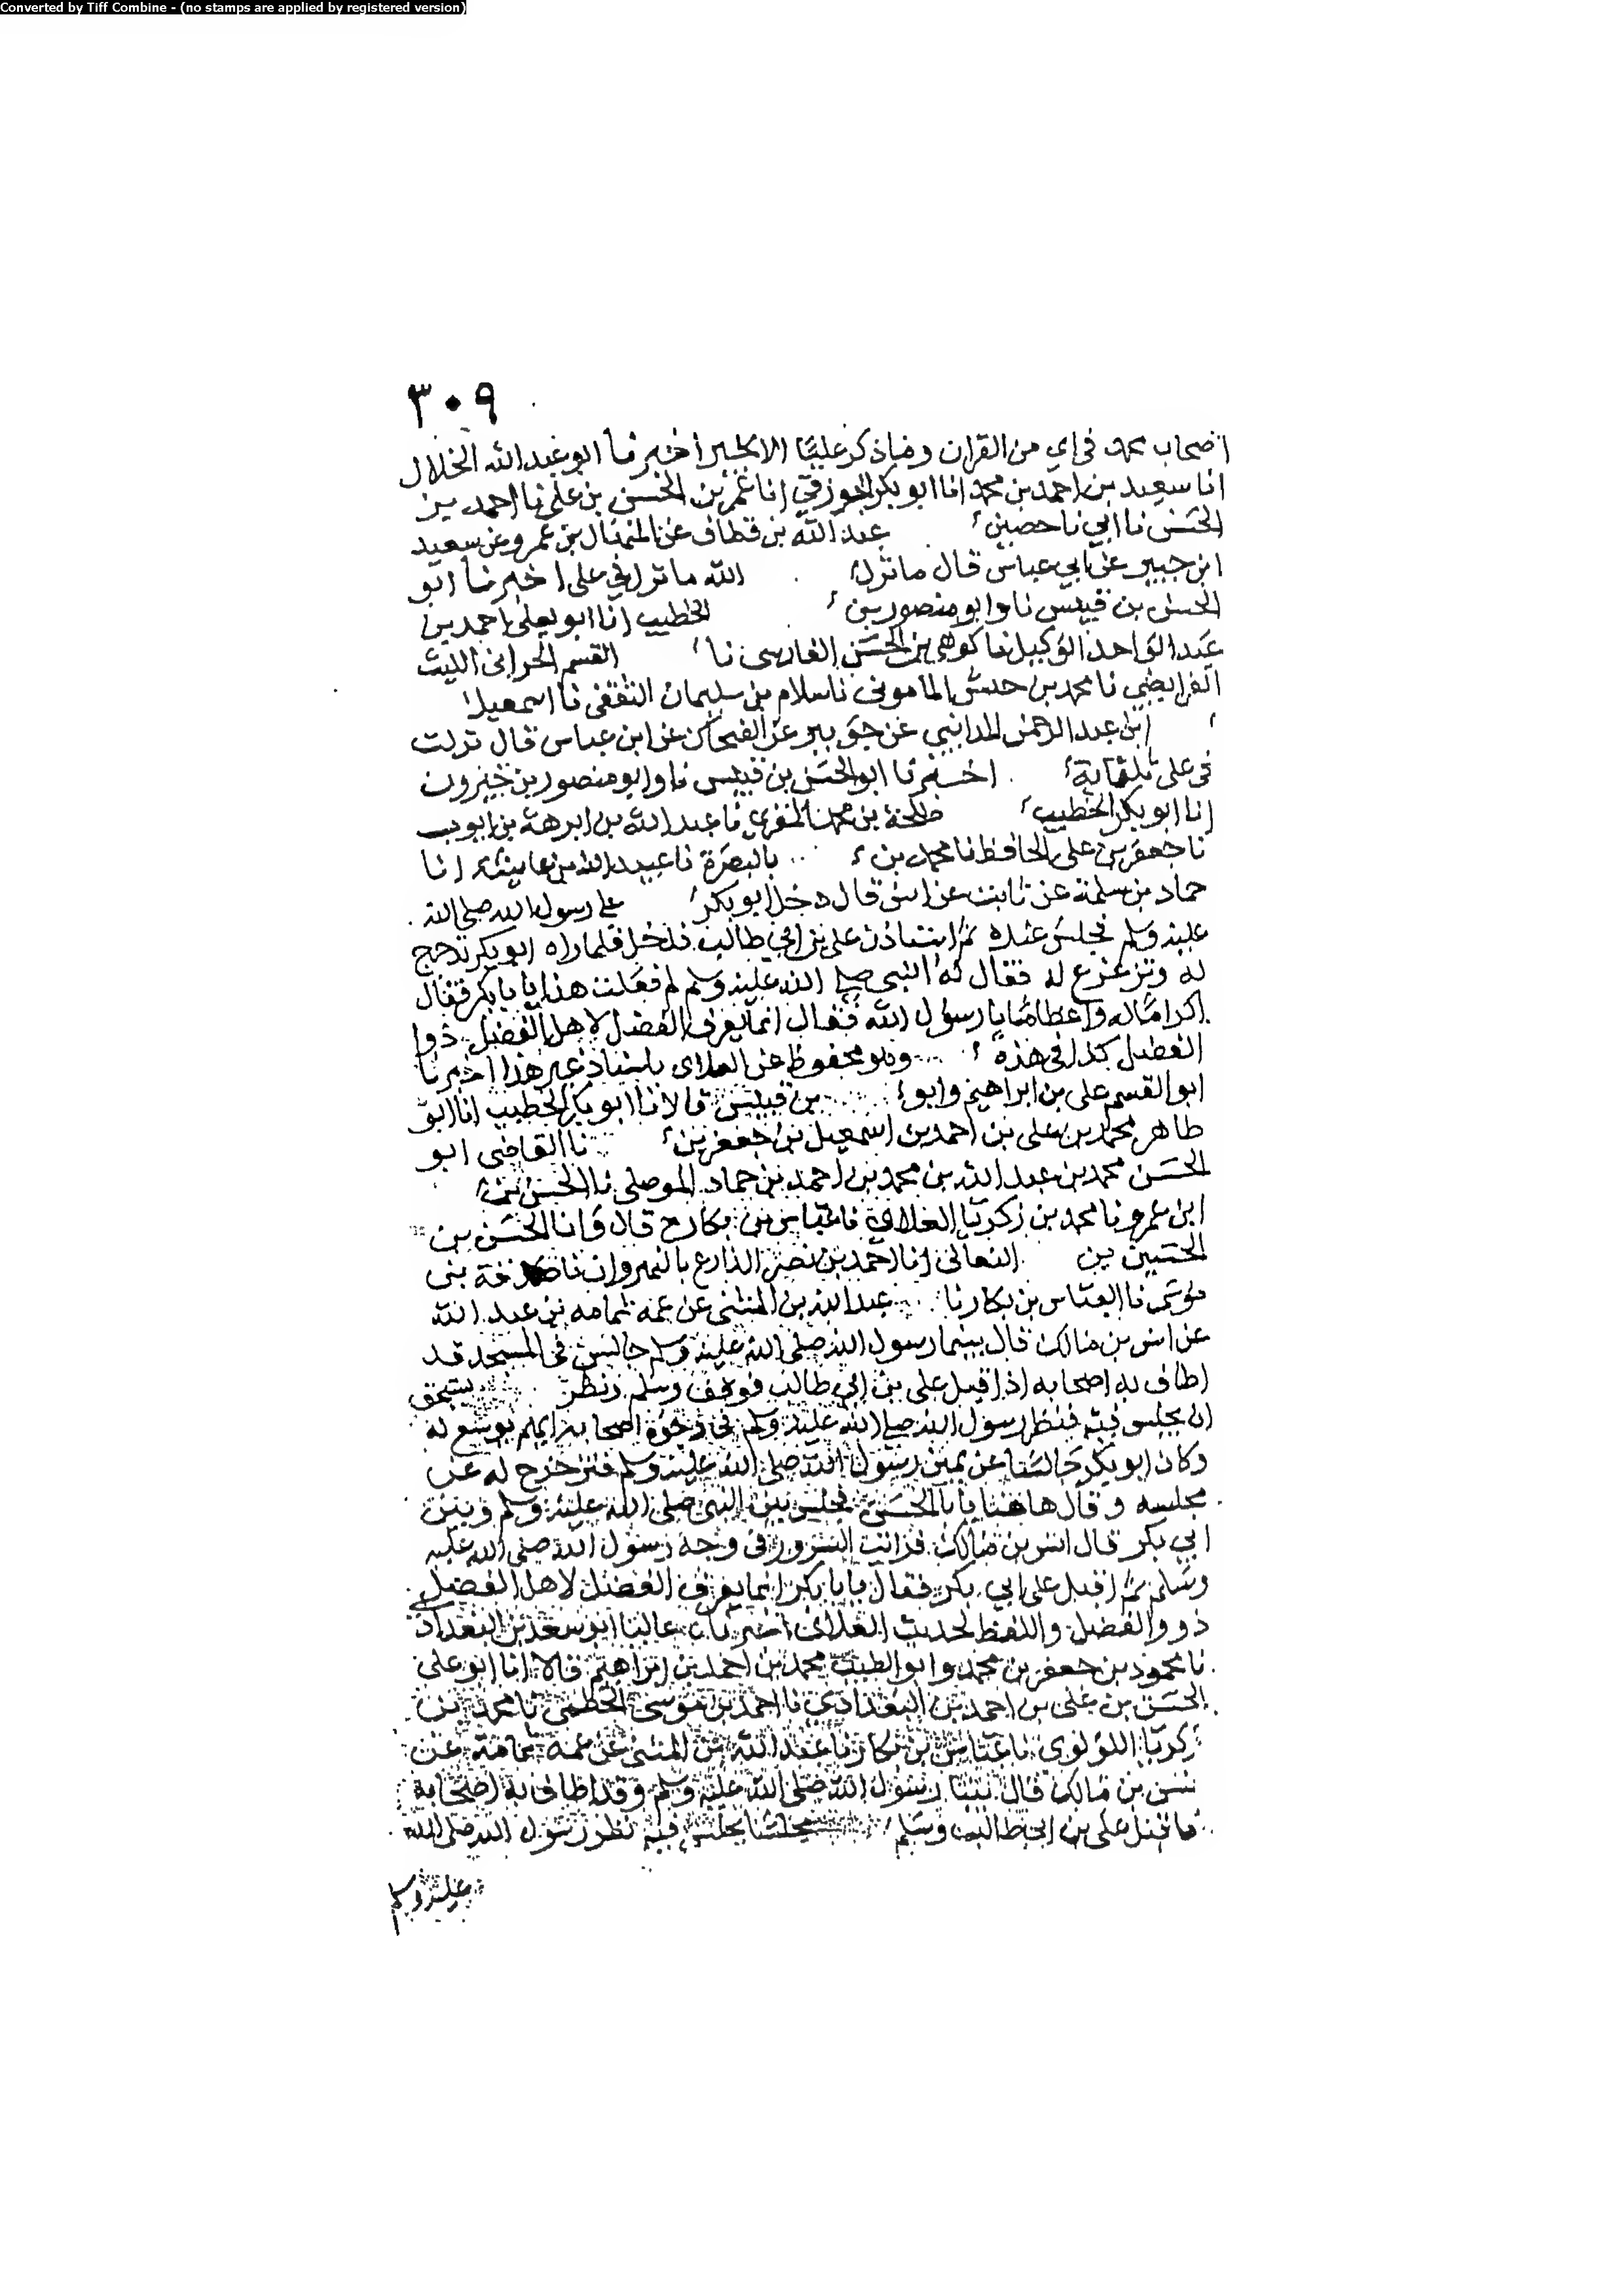 Converted by Tiff Combine - (no stamps are applied by registered version)
٣٠٩
اصحاب محمد في اي من القران وما ذكر عليا الا بخير اخبرنا ابو عبد الله الخلال
انا سعيد بن احمد بن محمد انا ابو بكر الجوزقي انا عمر بن الحسن بن علي نا احمد بن
الحسن نا ابي نا حصين عبد الله بن قطاف عن المنهال بن عمرو عن سعيد
ابن جبير عن ابي عباس قال ما نزل الله ما نزل في علي اخبرنا ابو
الحسن بن قبيس نا وابو منصور بن الخطيب انا ابو يعلى احمد بن
عبد الواحد الوكيل نا كوهي بن الحسن الفارسي نا القسم الحراني الليث
الفرايضي نا محمد بن حبش الماموني نا سلام بن سليمان الثقفي نا اسمعيل
ابن عبد الرحمن المدايني عن جويبر عن الضحاك عن ابن عباس قال نزلت
في علي ثلثماية اخبرنا ابو الحسن بن قبيس نا وابو منصور بن خيرون
انا ابو بكر الخطيب طلحة بن محمد المقري نا عبد الله بن ابرهة بن ايوب
نا جعفر بن علي الحافظ نا محمد بن بالبصرة نا عبيد الله بن عايشة انا
حماد بن سلمة عن ثابت عن انس قال دخل ابو بكر على رسول الله صلى الله
عليه وسلم فجلس عنده ثم استاذن علي بن ابي طالب فدخل فلما راه ابو بكر تزحزح
له وتزعزع له فقال له النبي صلى الله عليه وسلم لم فعلت هذا يا با بكر فقال
اكراما له واعظاما يا رسول الله فقال انما يعرف الفضل لاهل الفضل ذوا
الفضل كذا في هذه وهو محفوظ عن الغلابي باسناد غير هذا اخبرنا
ابو القسم علي بن ابراهيم وابو بن قبيس قالا نا ابو بكر الخطيب انا ابو
طاهر محمد بن علي بن احمد بن اسمعيل بن جعفر بن نا القاضي ابو
الحسن محمد بن عبد الله بن محمد بن احمد بن حماد الموصلي نا الحسن بن
ابن عمرو نا محمد بن زكريا الغلابي نا عباس بن بكار ح قال وانا الحسن بن
الحسين بن النعالي انا احمد بن نصر الذارع بالنهروان نا صدقة بن
موسى نا العباس بن بكار نا عبد الله بن المثنى عن عمه ثمامه بن عبد الله
عن انس بن مالك قال بينما رسول الله صلى الله عليه وسلم جالس في المسجد قد
اطاف به اصحابه اذ اقبل علي بن ابي طالب فوقف وسلم ونظر يستحق
ان يجلس فيه فنظر رسول الله صلى الله عليه وسلم في وجوه اصحابه ايهم يوسع له
وكان ابو بكر جالسا عن يمين رسول الله صلى الله عليه وسلم فتزحزح له عن
مجلسه وقال هاهنا يا با الحسن فجلس بين النبي صلى الله عليه وسلم وبين
ابي بكر قال انس بن مالك فرايت السرور في وجه رسول الله صلى الله عليه
وسلم ثم اقبل على ابي بكر فقال يا با بكر انما يعرف الفضل لاهل الفضل
ذوو الفضل واللفظ لحديث الغلابي اخبرناه عاليا ابو سعد بن البغدادي
نا محمود بن جعفر بن محمد وابو الطيب محمد بن احمد بن ابراهيم قالا انا ابو علي
الحسن بن علي بن احمد بن البغدادي نا احمد بن موسى الخطمي نا محمد بن
زكريا اللؤلوي نا عباس بن بكار نا عبد الله بن المثنى عن عمه ثمامة عن
نس بن مالك قال بينا رسول الله صلى الله عليه وسلم وقد اطاف به اصحابه
فاقبل علي بن ابي طالب وسلم مجلسا يجلس فيه نظر رسول الله صلى الله
عليه وسلم